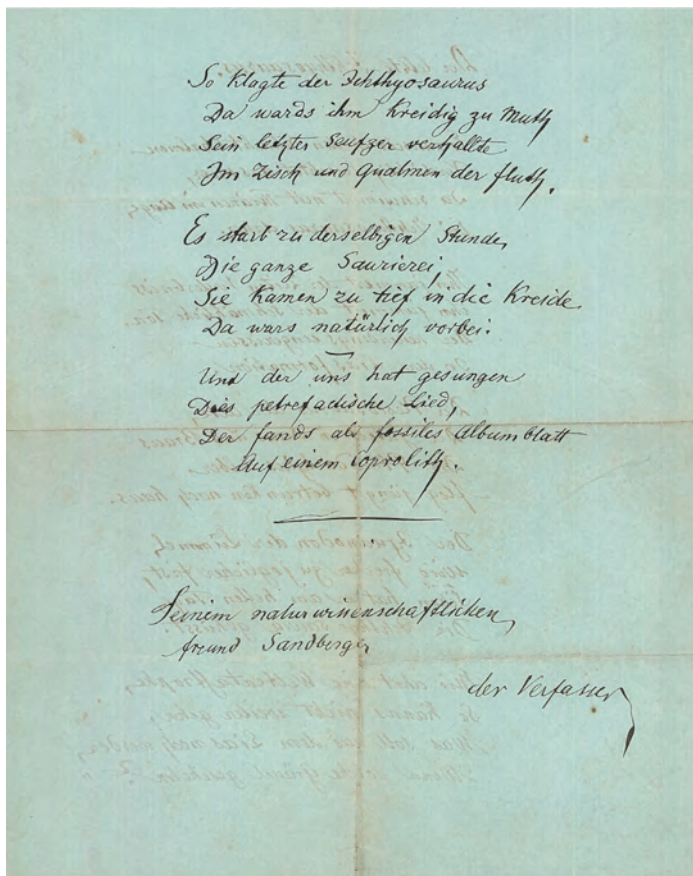 So klagte der Ichthyosaurus
Da wards ihm kreidig zu Muth
Sein letzter Seufzer verhallte
Im Zisch und Qualmen der fluth.
Es starb zu derselbigen Stunde,
Die ganze Saurierei,
Sie kamen zu tief in die Kreide
Da wars natürlich vorbei.
Und der uns hat gesungen
Dies petrefactische Lied,
Der fands als fossiles Albumblatt
Auf einem Coprolith.
Seinem naturwissenschaftlichen
freund Sandberger
der Verfasser